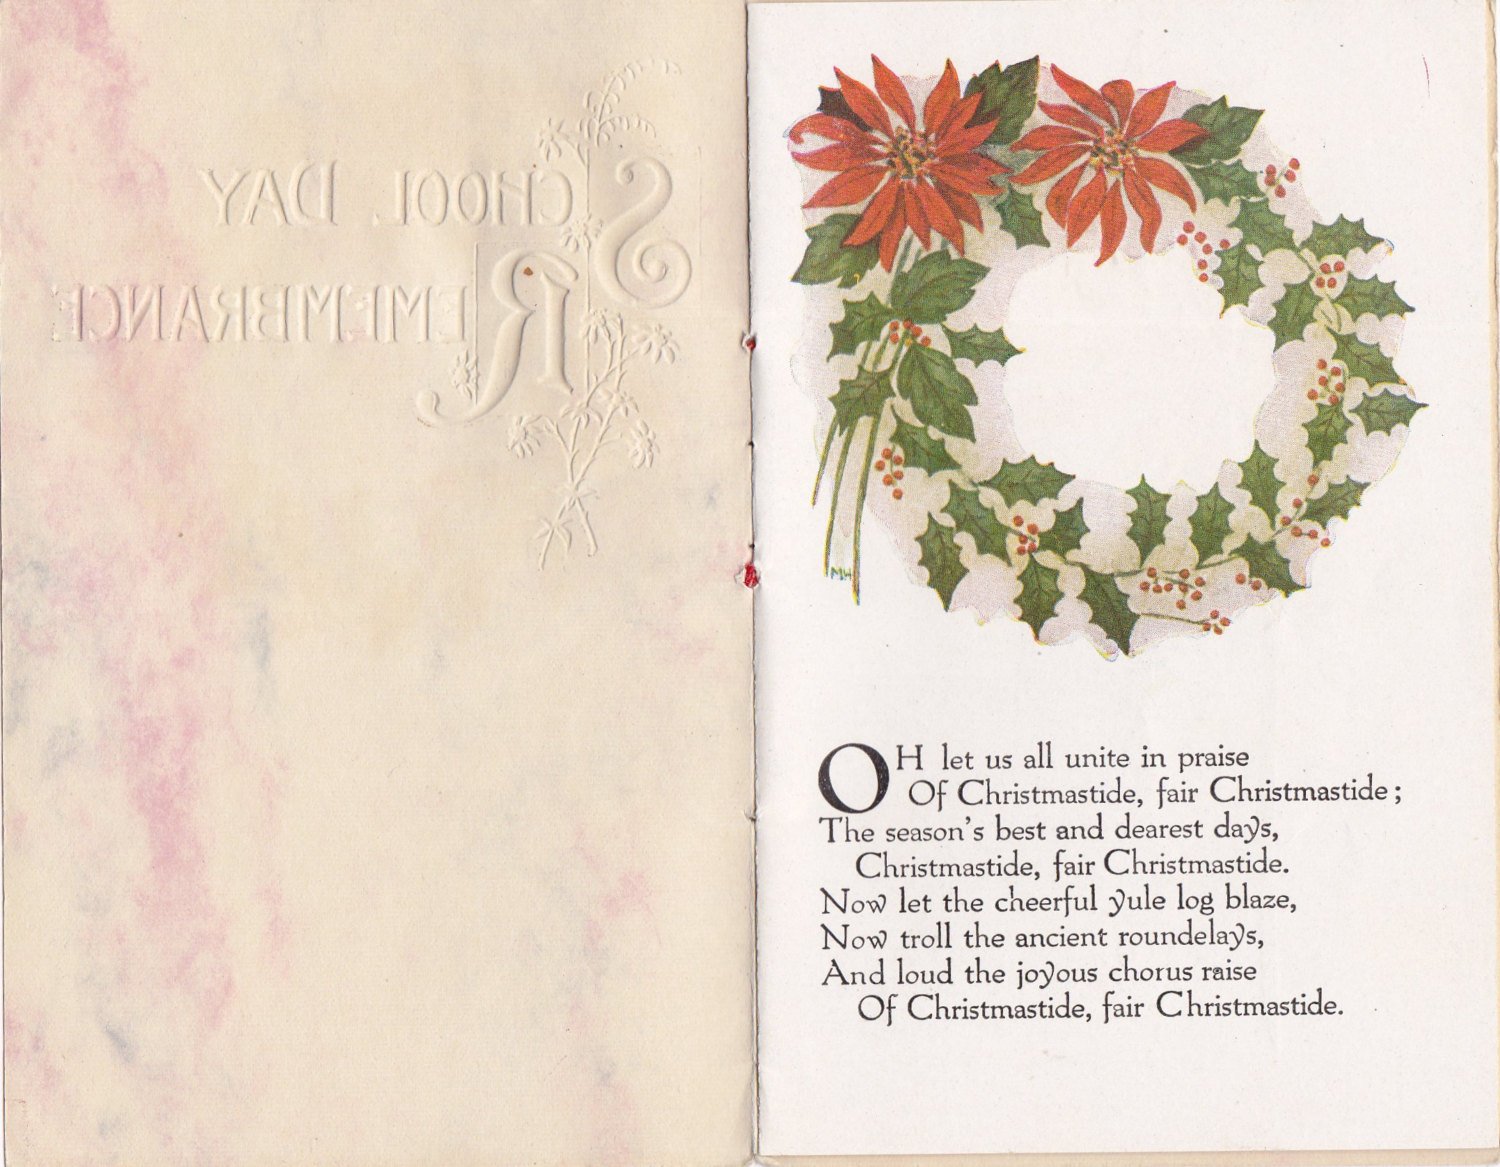 SCHOOL DAY
REMEMBRANCE
MH
OH let us all unite in praise
Of Christmastide, fair Christmastide;
The season's best and dearest days,
Christmastide, fair Christmastide.
Now let the cheerful yule log blaze,
Now troll the ancient roundelays,
And loud the joyous chorus raise
Of Christmastide, fair Christmastide.